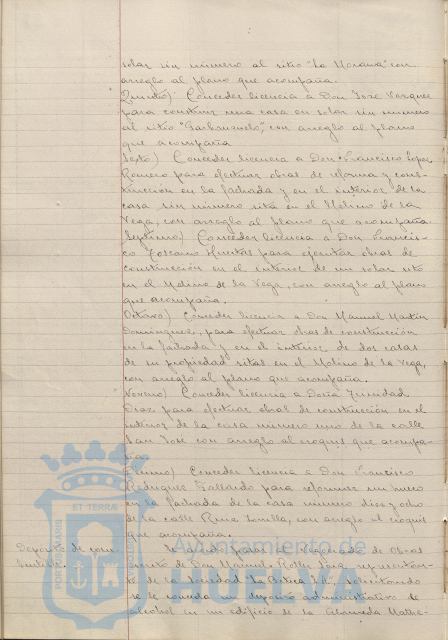 solar sin número al sitio "La Morana" con
arreglo al plano que acompaña.
Quinto) Conceder licencia a Don José Vazquez
para construir una casa en solar sin número
al sitio con arreglo al plano
que acompaña
Sexto) Conceder licencia a Don Francisco Lopez
Romero para efectuar obras de reforma y cons-
trucción en la fachada y en el interior de la
casa sin número sita en el Molino de la
Vega, con arreglo al plano que acompaña.
Septimo) Conceder licencia a Don Francis-
co Toscano Huertas para ejecutar obras de
construcción en el interior de un solar sito
en el Molino de la Vega, con arreglo al plano
que acompaña.
Octavo) Conceder licencia a Don Manuel Martin
Dominguez, para efectuar obras de construcción
en la fachada y en el interior de dos casas
de su propiedad sitas en el Molino de la Vega,
con arreglo al plano que acompaña.
Noveno) Conceder licencia a Doña Trinidad
Diaz para efectuar obras de construcción en el
interior de la casa número uno de la calle
San José con arreglo al croquis que acompa-
ña.
Decimo) Conceder licencia a Don Francisco
Rodriguez Gallardo para reformar un hueco
en la fachada de la casa número diez y ocho
de la calle con arreglo al croquis
que acompaña.
Deposito de com-
bustible.
escrito de Don Manuel represent-
te de la Sociedad "La S.A.", solicitando
se le conceda un deposito administrativo de
alcohol en un edificio de la Alameda
ET TERRÆ
Ayuntamiento de
HUELVA